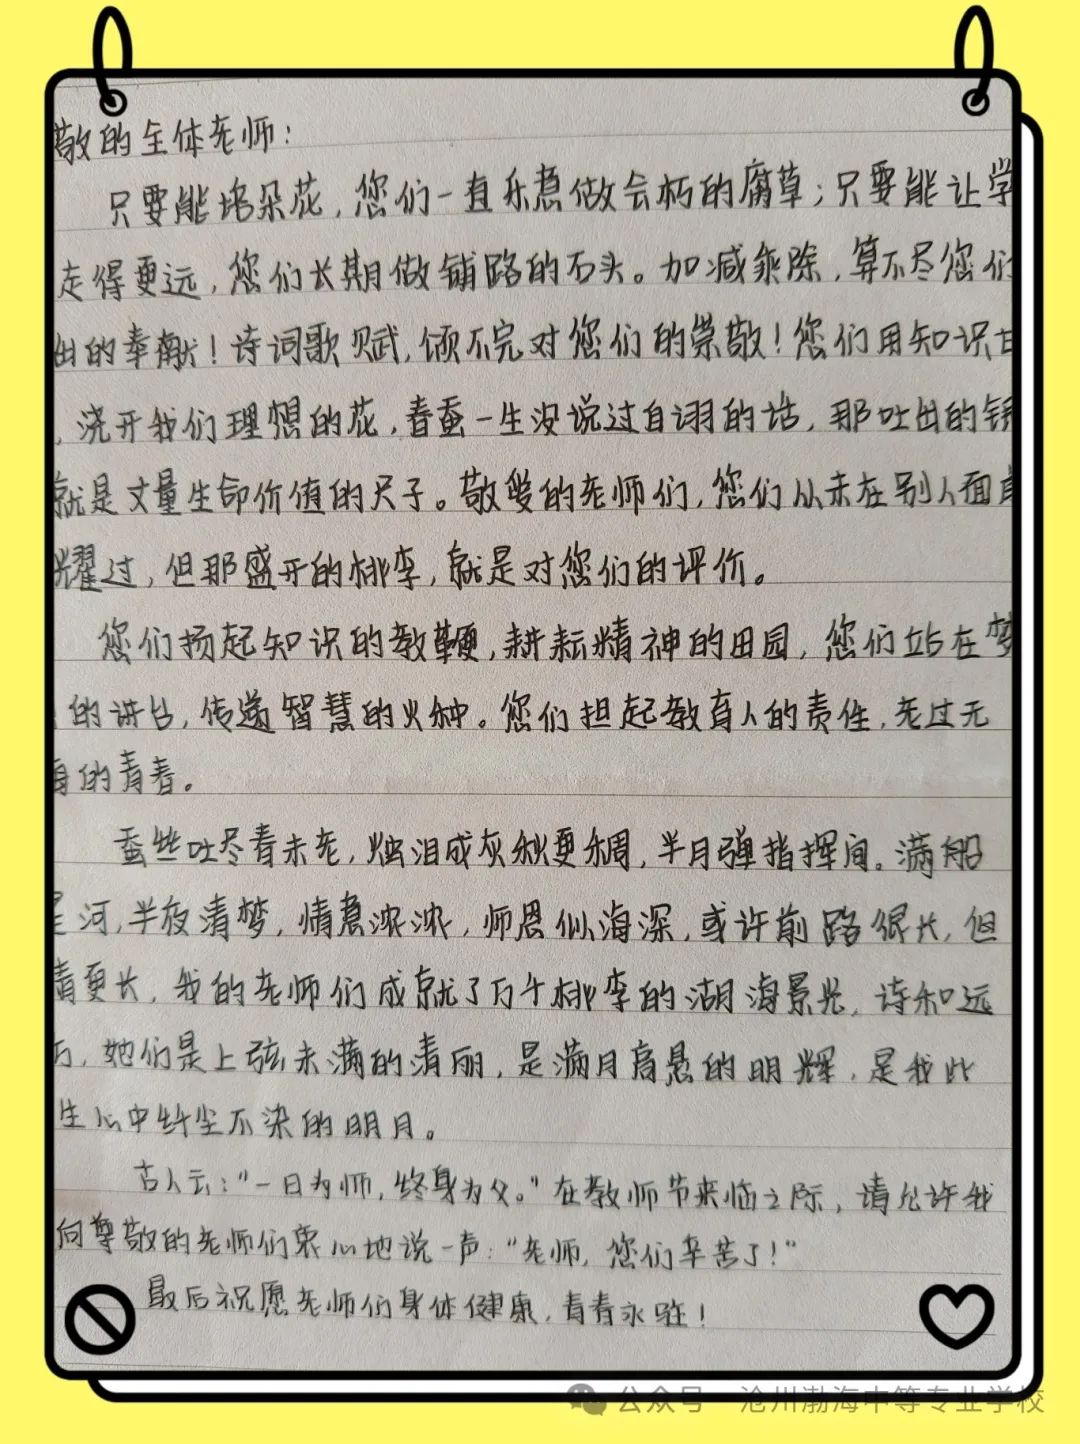 敬的全体老师：
只要能培朵花，您们一直乐意做会朽的腐草；只要能让学
走得更远，您们长期做铺路的石头。加减乘除，算不尽您们
出的奉献！诗词歌赋，颂不完对您们的崇敬！您们用知识甘
，浇开我们理想的花，春蚕一生没说过自诩的话，那吐出的银
就是丈量生命价值的尺子。敬爱的老师们，您们从未在别人面前
耀过，但那盛开的桃李，就是对您们的评价。
您们扬起知识的教鞭，耕耘精神的田园，您们站在梦
的讲台，传递智慧的火种。您们担起教育人的责任，老过无
悔的青春。
蚕丝吐尽春未老，烛泪成灰秋更稠，半月弹指挥间。满船
星河，半夜清梦，情意浓浓，师恩似海深，或许前路很长，但
情更长，我的老师们成就了万千桃李的湖海景光，诗和远
方，她们是上弦未满的清丽，是满月高悬的明辉，是我此
生心中纤尘不染的明月。
古人云：“一日为师，终身为父。”在教师节来临之际，请允许我
向尊敬的老师们衷心地说一声：“老师，您们辛苦了！”
最后祝愿老师们身体健康，青春永驻！
公众号 沧州渤海中等专业学校